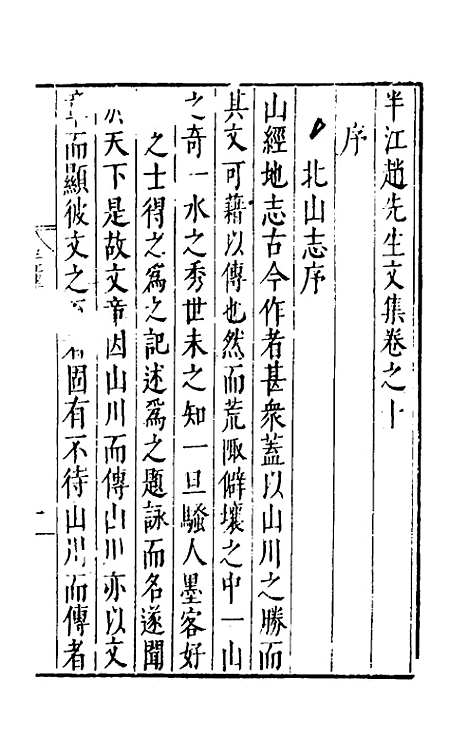 半江趙先生文集卷之十
序
北山志序
山經地志古今作者甚衆蓋以山川之勝而
其文可藉以傳也然而荒陬僻壤之中一山
之奇一水之秀世未之知一旦騷人墨客好
之士得之爲之記述爲之題詠而名遂聞
天下是故文章因山川而傳山川亦以文
章而顯彼文之 者固有不待山川而傳者